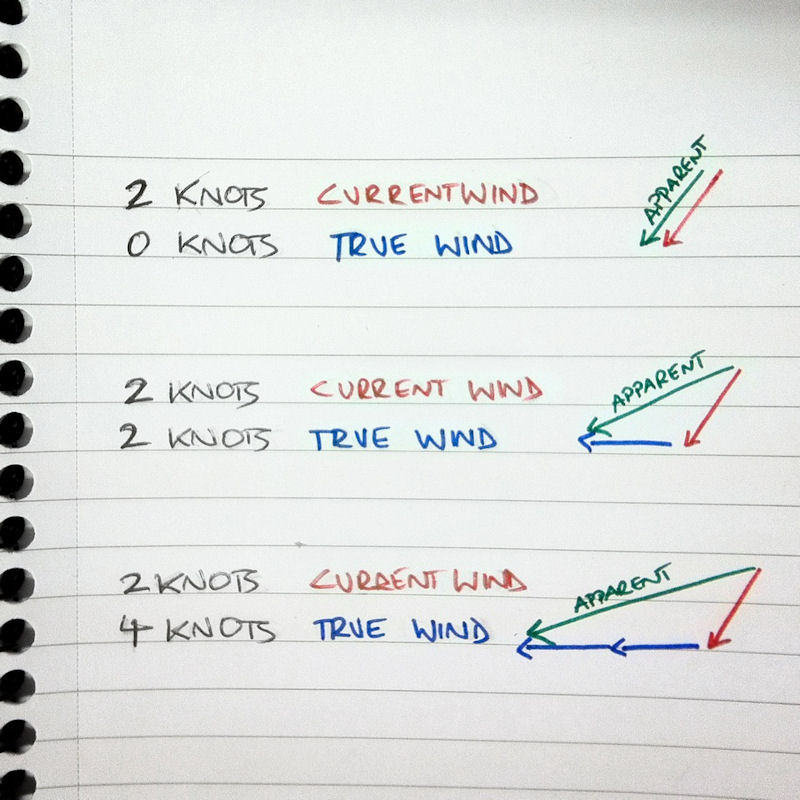 2 KNOTS CURRENTWIND APPARENT
0 KNOTS TRUE WIND
2 KNOTS CURRENT WIND APPARENT
2 KNOTS TRUE WIND
2 KNOTS CURRENT WIND APPARENT
4 KNOTS TRUE WIND